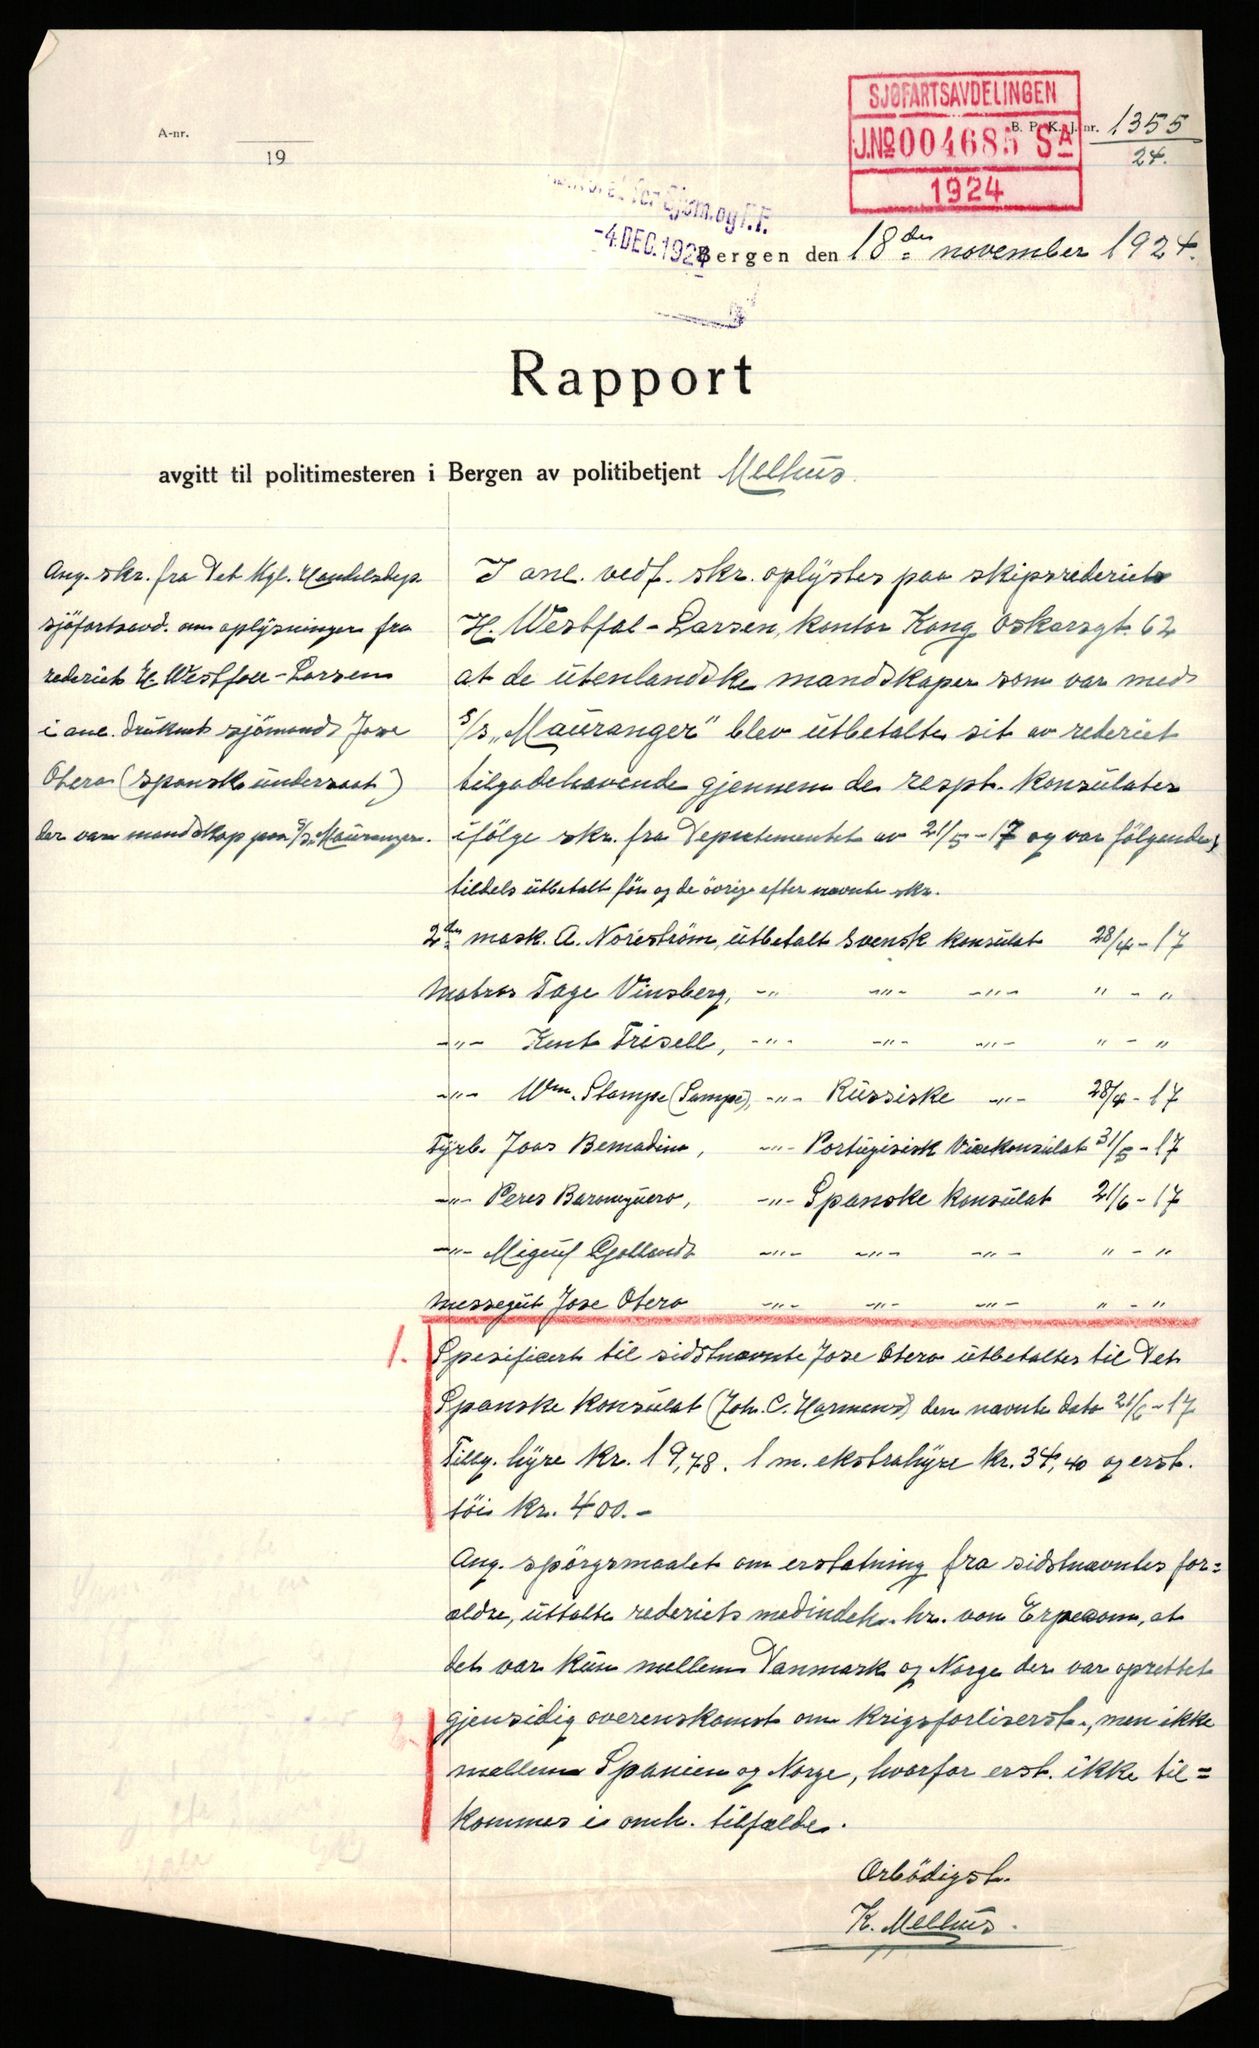 SJØFARTSAVDELINGEN
J.Nº 004685 SA
1924
A-nr.
19
B. P. K. J. nr. 1355
24.
for Sjøm. og F.F.
-4.DEC.1924
Bergen den 18den november 1924.
Rapport
avgitt til politimesteren i Bergen av politibetjent Melhus.
Ang. skr. fra Det Kgl. Handelsdep.
sjöfartsavd. om oplysninger fra
rederiet H. Westfal-Larsen
i anl. druknet sjömand Jose
Otero (spansk undersaat)
der var mandskap paa s/s „Mauranger.
I anl. vedf. skr. oplystes paa skipsrederiet
H. Westfal-Larsen, kontor Kong Oskarsgt. 62
at de utenlandske mandskaper som var med
s/s „Mauranger" blev utbetalte sit av rederiet
tilgodehavende gjennem de respt. konsulater
ifölge skr. fra Departementet av 21/5-17 og var fölgende,
tildels utbetalt för og de övrige efter nævnte skr.
2den mask. A. Noreström, utbetalt Svensk konsulat 28/4-17
Matros Tage Vinsberg, -"- -"- -"- " - "
-"- Kent Trisell, -"- -"- -"- " - "
-"- Wm. Stampe (Sampe), -"- Russiske -"- 28/4-17
Fyrb. Joas Bemadino, -"- Portugisisk Vicekonsulat 31/5-17
-"- Peres Baromguero, -"- Spanske Konsulat 21/6-17
-"- Miguel Gollando -"- -"- -"- " - "
Messegut Jose Otero -"- -"- -"- " - "
1. Spesificert til sidstnævnte Jose Otero utbetaltes til Det
Spanske konsulat (Joh. C. Harmens) den nævnte dato 21/6-17
Tillg. hyre kr. 19,78. 1 m. ekstrahyre kr. 34,40 og erst.
töi kr. 400.-
Ang. spörgsmaalet om erstatning fra sidstnævntes for=
ældre, uttalte rederiets medindeh. hr. von Erpecom, at
det var kun mellem Danmark og Norge der var oprettet
2. gjensidig overenskomst om krigsforliserst., men ikke
mellem Spanien og Norge, hvorfor erst. ikke til=
kommes i omh. tilfælde.
Ærbödigst.
K. Melhus.